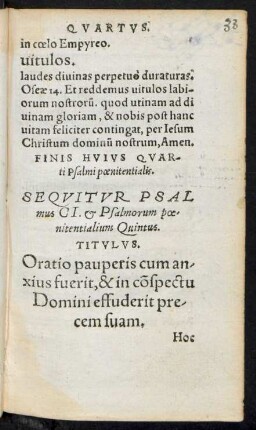 QVARTVS.
33
in cœlo Empyreo.
uitulos.
laudes diuinas perpetuo duraturas.
Oseæ 14. Et reddemus uitulos labi-
orum nostrorũ. quod utinam ad di
uinam gloriam, & nobis post hanc
uitam feliciter contingat, per Iesum
Christum dominũ nostrum, Amen.
FINIS HVIVS QVAR-
ti Psalmi pœnitentialis.
SEQVITVR PSAL
mus CI. & Psalmorum pœ-
nitentialium Quintus.
TITVLVS.
Oratio pauperis cum an-
xius fuerit, & in cõspectu
Domini effuderit pre-
cem suam.
Hoc